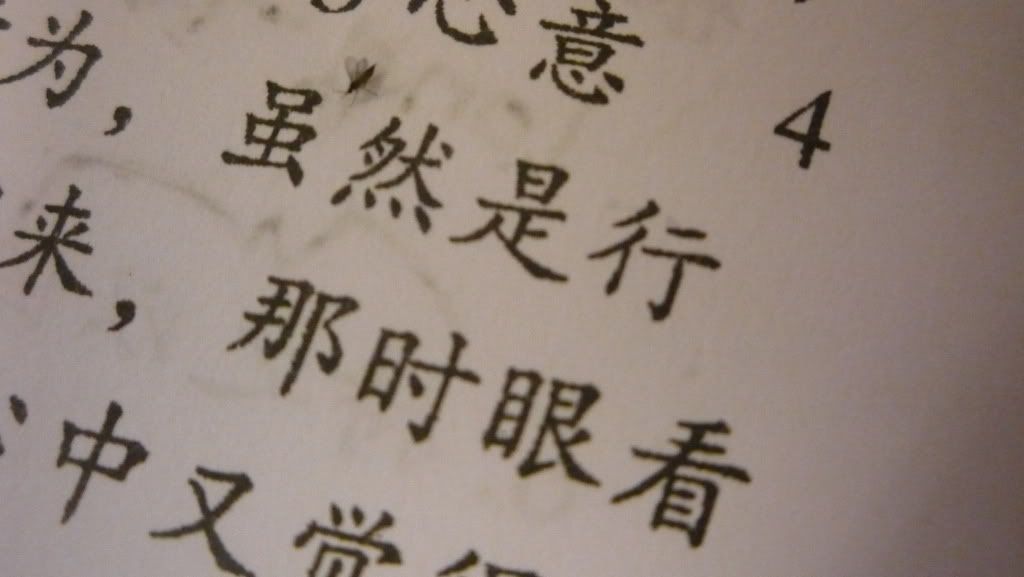 心意
4
为，虽然是行
来，那时眼看
中又觉得